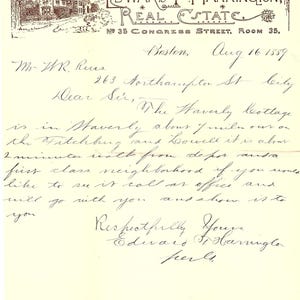 Edward T Harrington,
Real Estate
No 35 Congress Street, Room 35.
Boston, Aug 16 1889
Mr W R
263 Northampton St City
Dear Sir,
The Waverly Cottage
is in Waverly about 7 miles out on
the Fitchburg and Lowell it is about
2 minutes walk from depot and a
first class neighborhood if you would
like to see it call at office and
will go with you and show it to
you
Respectfully Yours
Edward T Harrington